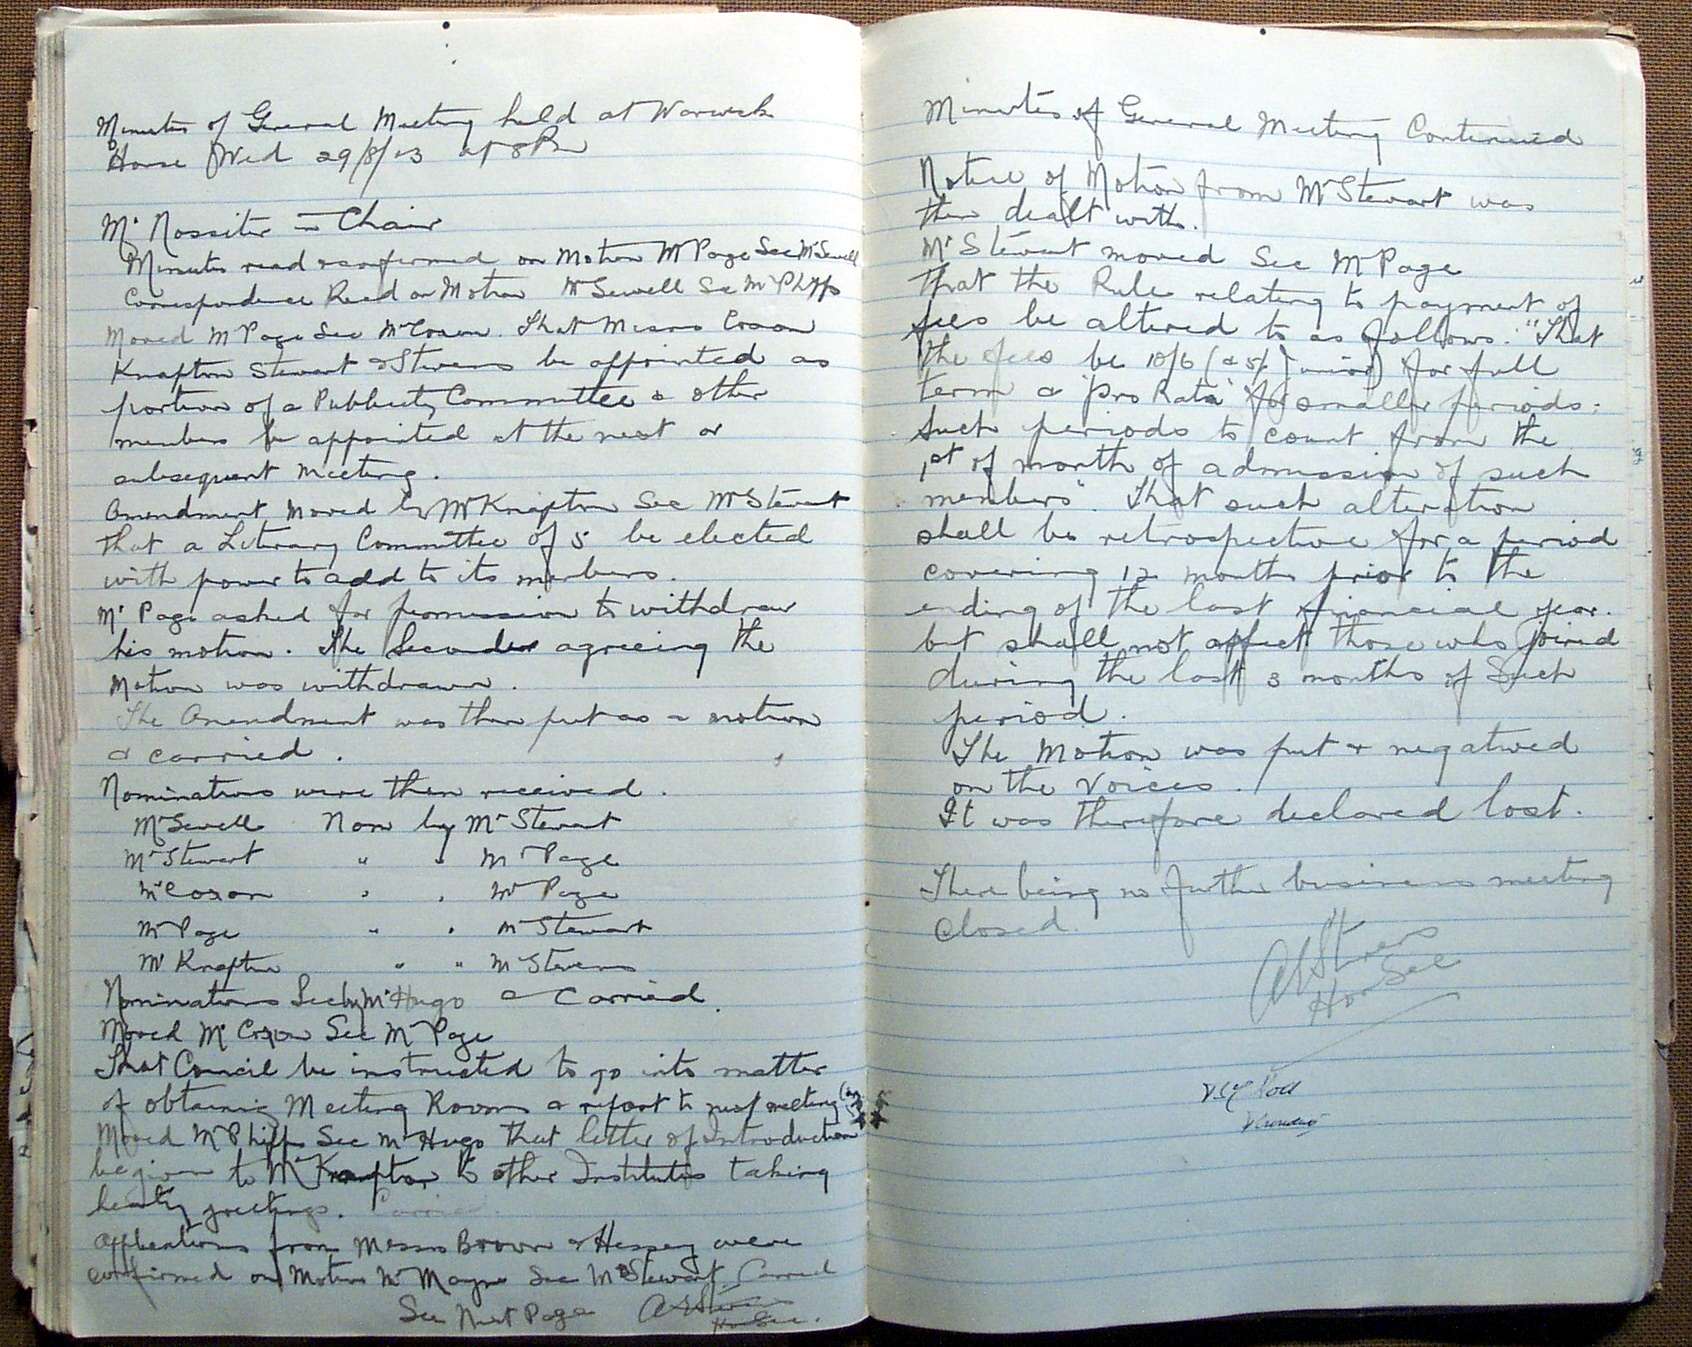 Minutes of General Meeting held at Warwick
House Wed 29/8/23 at 8 Pm
Mr Rossiter in Chair
Minutes read & confirmed on Motion Mr Page Sec Mr Sewell
Correspondence Read on Motion Mr Sewell Sec Mr Phipps
Moved Mr Page Sec Mr Coxon. That Messrs Coxon
Knapton Stewart & Stevens be appointed as
portion of a Publicity Committee & other
members be appointed at the next or
subsequent meeting.
Amendment Moved by Mr Knapton Sec Mr Stewart
that a Literary Committee of 5 be elected
with power to add to its members.
Mr Page asked for permission to withdraw
his motion. The Seconder agreeing the
Motion was withdrawn.
The Amendment was then put as a motion
& carried.
Nominations were then received.
Mr Sewell Nom by Mr Stewart
Mr Stewart " " Mr Page
Mr Coxon " " Mr Page
Mr Page " " Mr Stewart
Mr Knapton " " Mr Stevens
Nominations Sec by Mr Hugo & Carried.
Moved Mr Coxon Sec Mr Page
That Council be instructed to go into matter
of obtaining Meeting Rooms & report to next meeting
Moved Mr Phipps Sec Mr Hugo that letter of Introduction
be given to Mr Knapton to other Institutes taking
hearty greetings. Carried
Applications from Messrs Brown & Hessey were
confirmed on Motion Mr Mayne Sec Mr Stewart. Carried
See Next Page A E Stevens
Hon Sec.
Minutes of General Meeting Continued
Notice of Motion from Mr Stewart was
then dealt with.
Mr Stewart moved Sec Mr Page
That the Rule relating to payment of
fees be altered to as follows. "That
the fees be 10/6 (& 5/- Junior) for full
term & "pro Rata" for smaller periods.
Such periods to count from the
1st of month of admission of such
members". That such alteration
shall be retrospective for a period
covering 12 months prior to the
ending of the last financial year.
but shall not affect those who joined
during the last 3 months of Such
period.
The Motion was put & negatived
on the Voices.
It was therefore declared lost.
There being no further business meeting
closed.
A E Stevens
Hon Sec